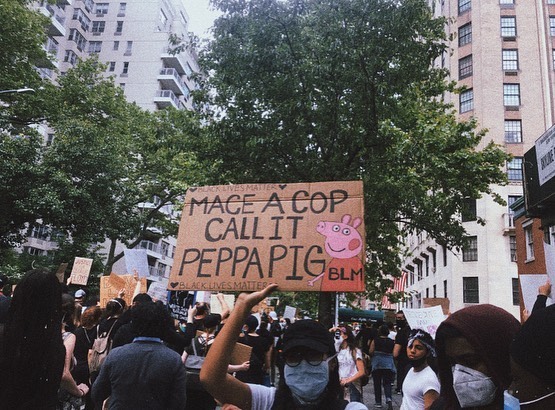 ♥BLACK LIVES MATTER♥
MACE A COP
CALL IT
PEPPA PIG
BLM
♥BLACK LIVES MATTER♥